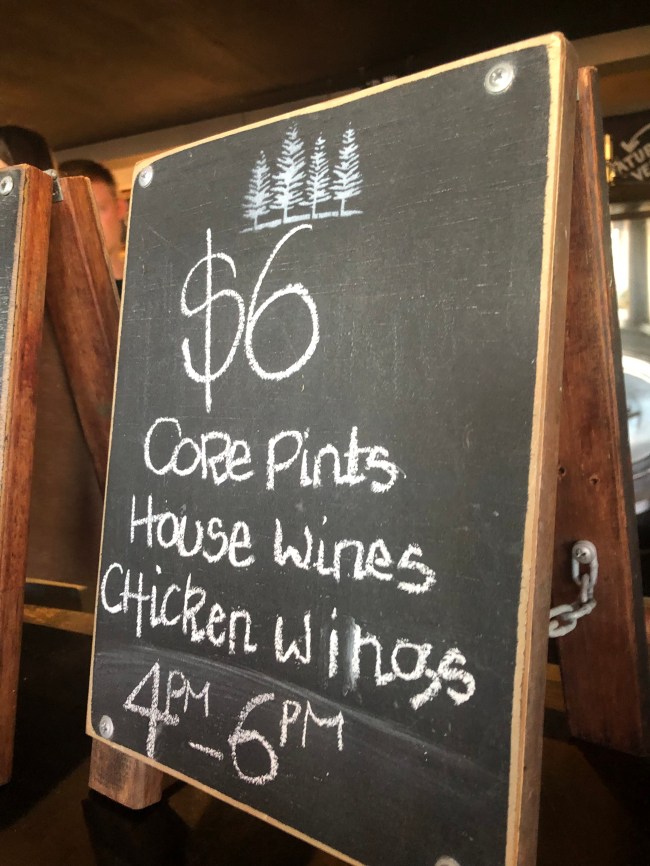 $6
CoRe Pints
House Wines
CHicken Wings
4PM - 6PM